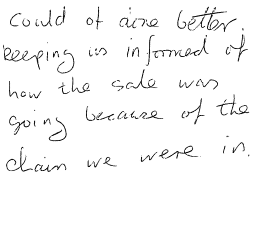 Could of done better.
keeping us informed of
how the sale was
going because of the
chain we were in.